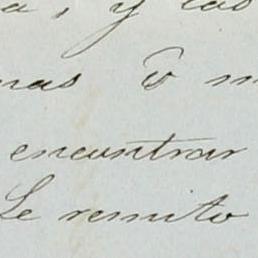 a, y las
mas ó m
encontrar
Le remito